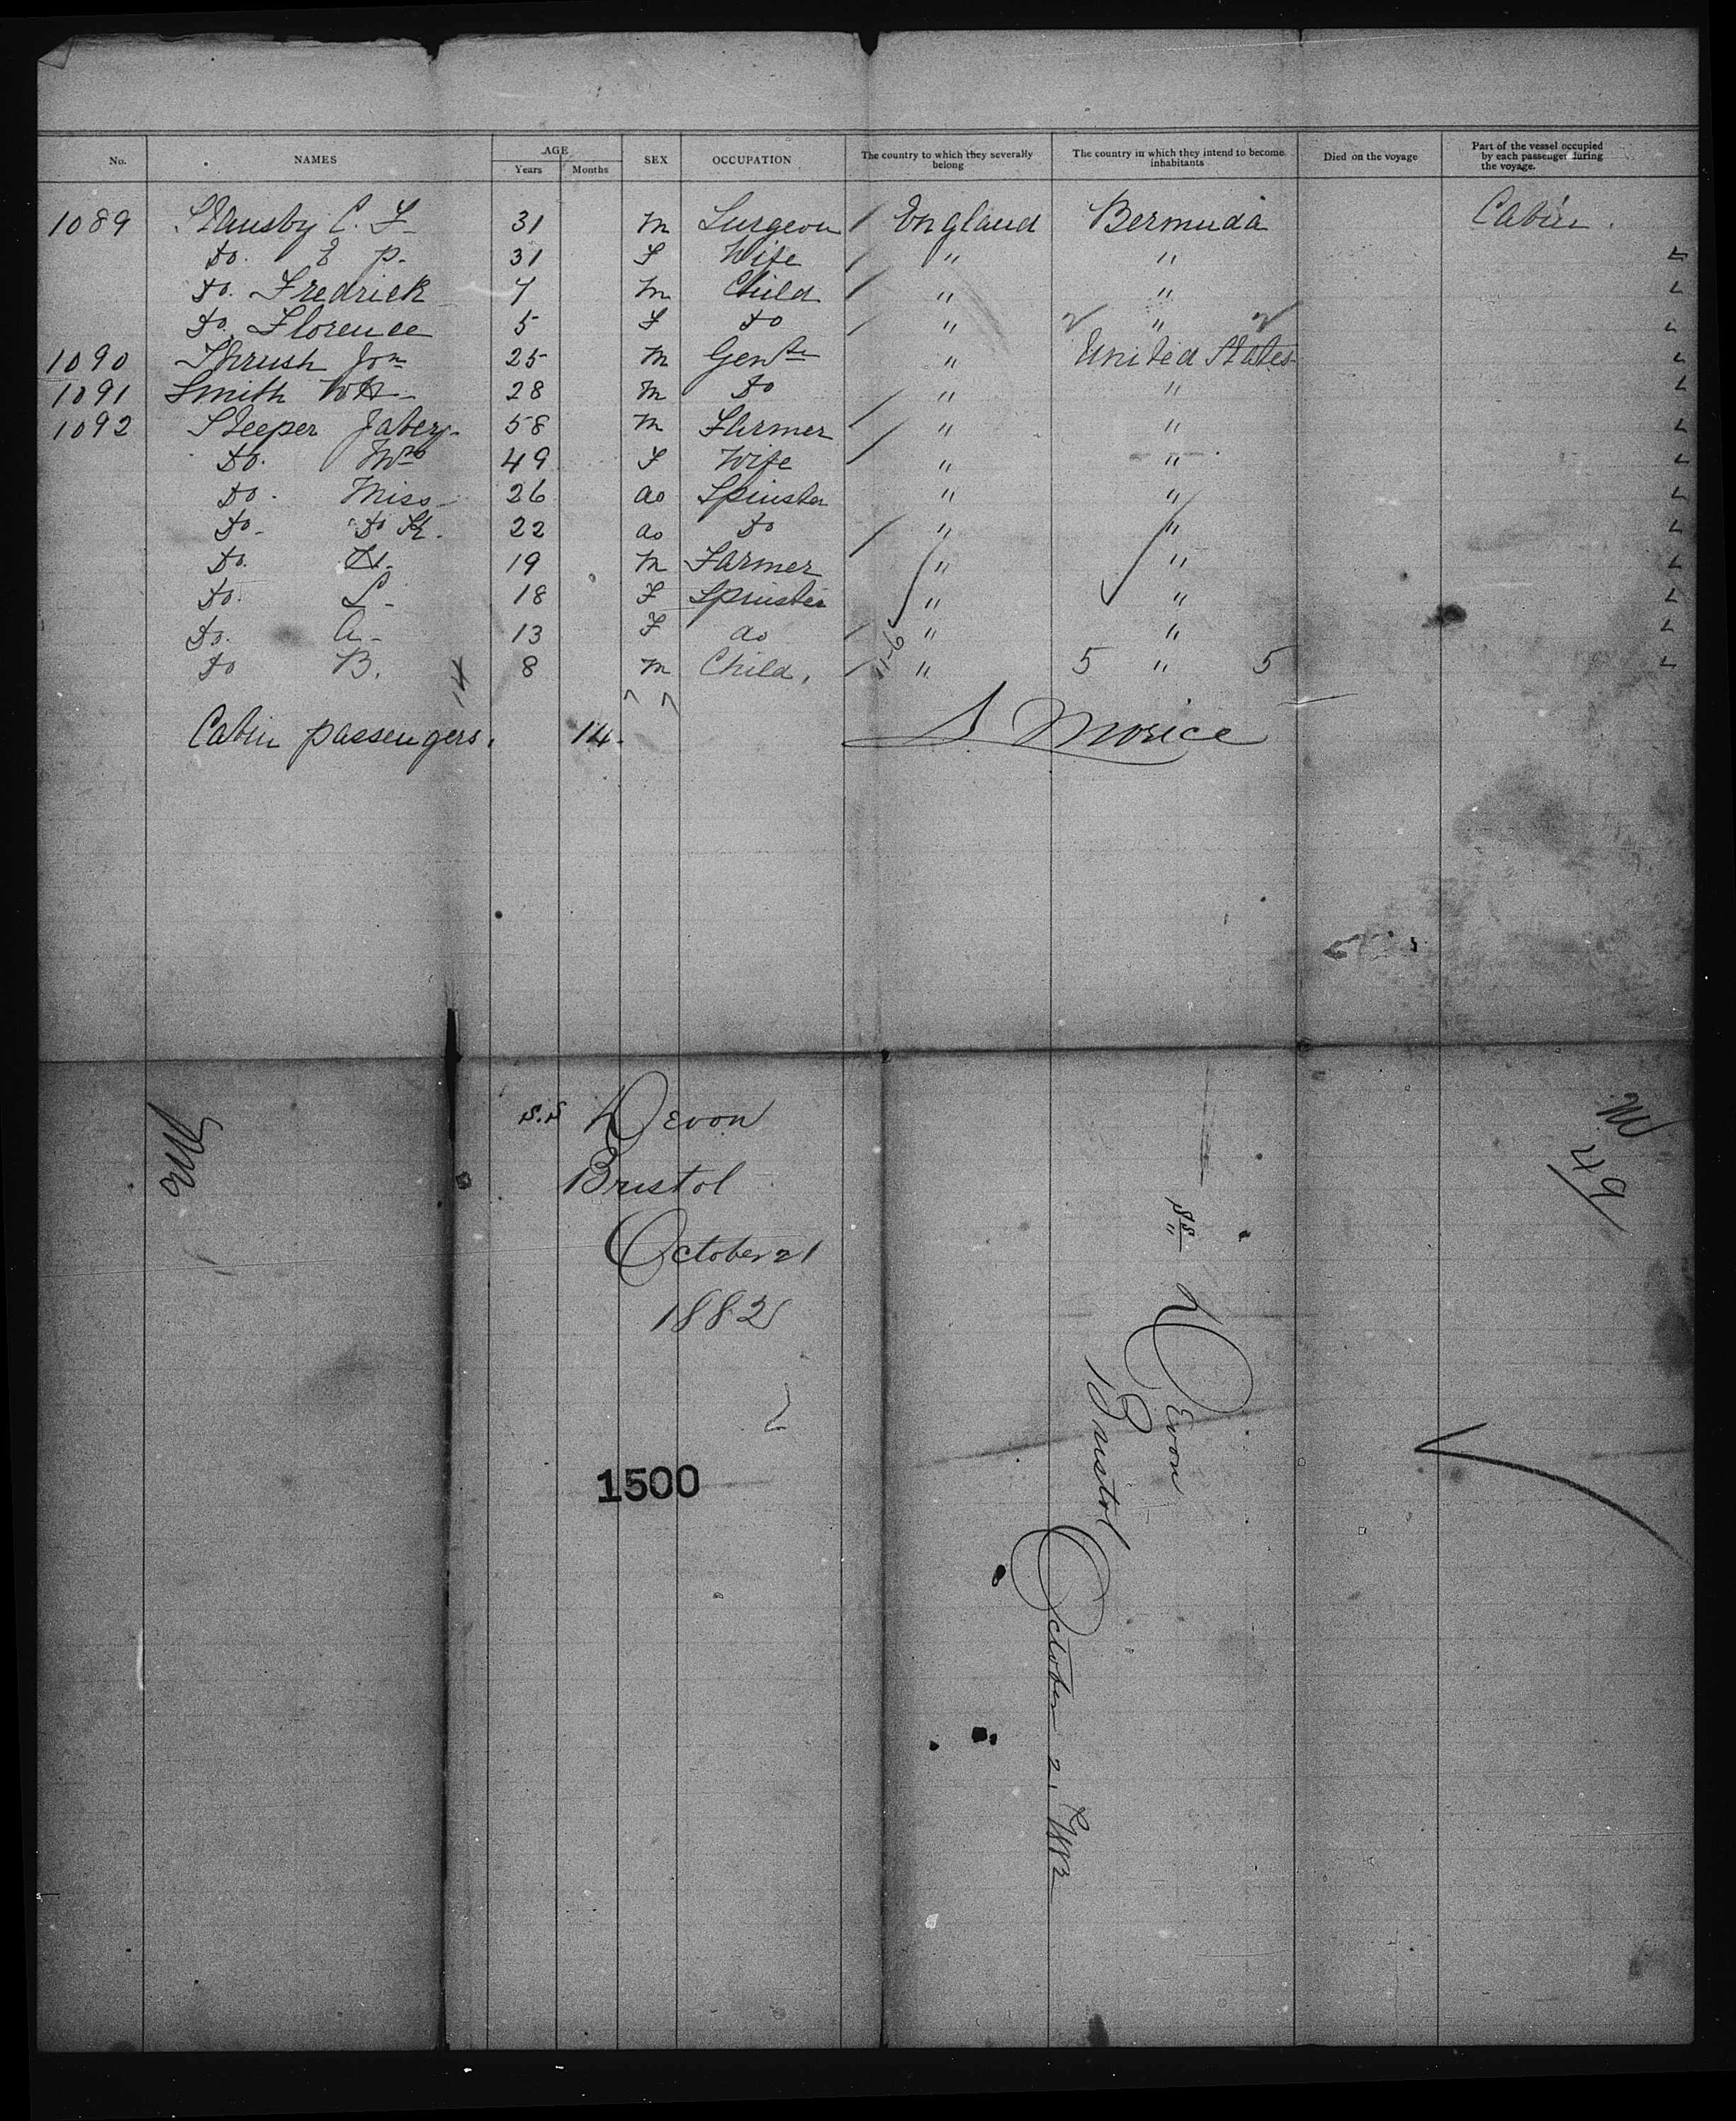 No. NAMES AGE Years Months SEX OCCUPATION The country to which they severally belong The country in which they intend to become inhabitants Died on the voyage Part of the vessel occupied by each passenger during the voyage.
1089 Stansby C. F. 31 m Surgeon / England Bermuda Cabin.
Do. E P. 31 F Wife / " "
Do. Fredrick 7 m Child / " "
Do. Florence 5 F Do / " "
1090 Thrush Jon 25 m Gentn " United States
1091 Smith WH 28 m Do / " "
1092 Steeper Jabez 58 m Farmer / " "
Do. Mrs 49 F Wife / " "
Do. Miss 26 do Spinster " "
Do. Do 22 do Do / " "
Do. H. 19 m Farmer " "
Do. L. 18 F Spinster " "
Do. A. 13 F do / " "
Do B. 8 m Child. / 11-6 " 5 " 5
14
Cabin passengers. 14. S. Morice
S.S Devon
Bristol
October 21
1882
1500
SS Devon
Bristol
October 21 1882
49